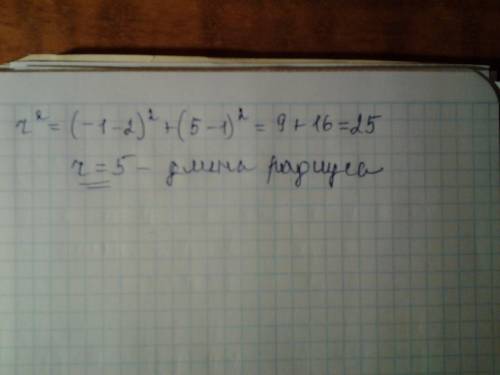 r² = (-1-2)² + (5-1)² = 9 + 16 = 25
r = 5 - длина радиуса